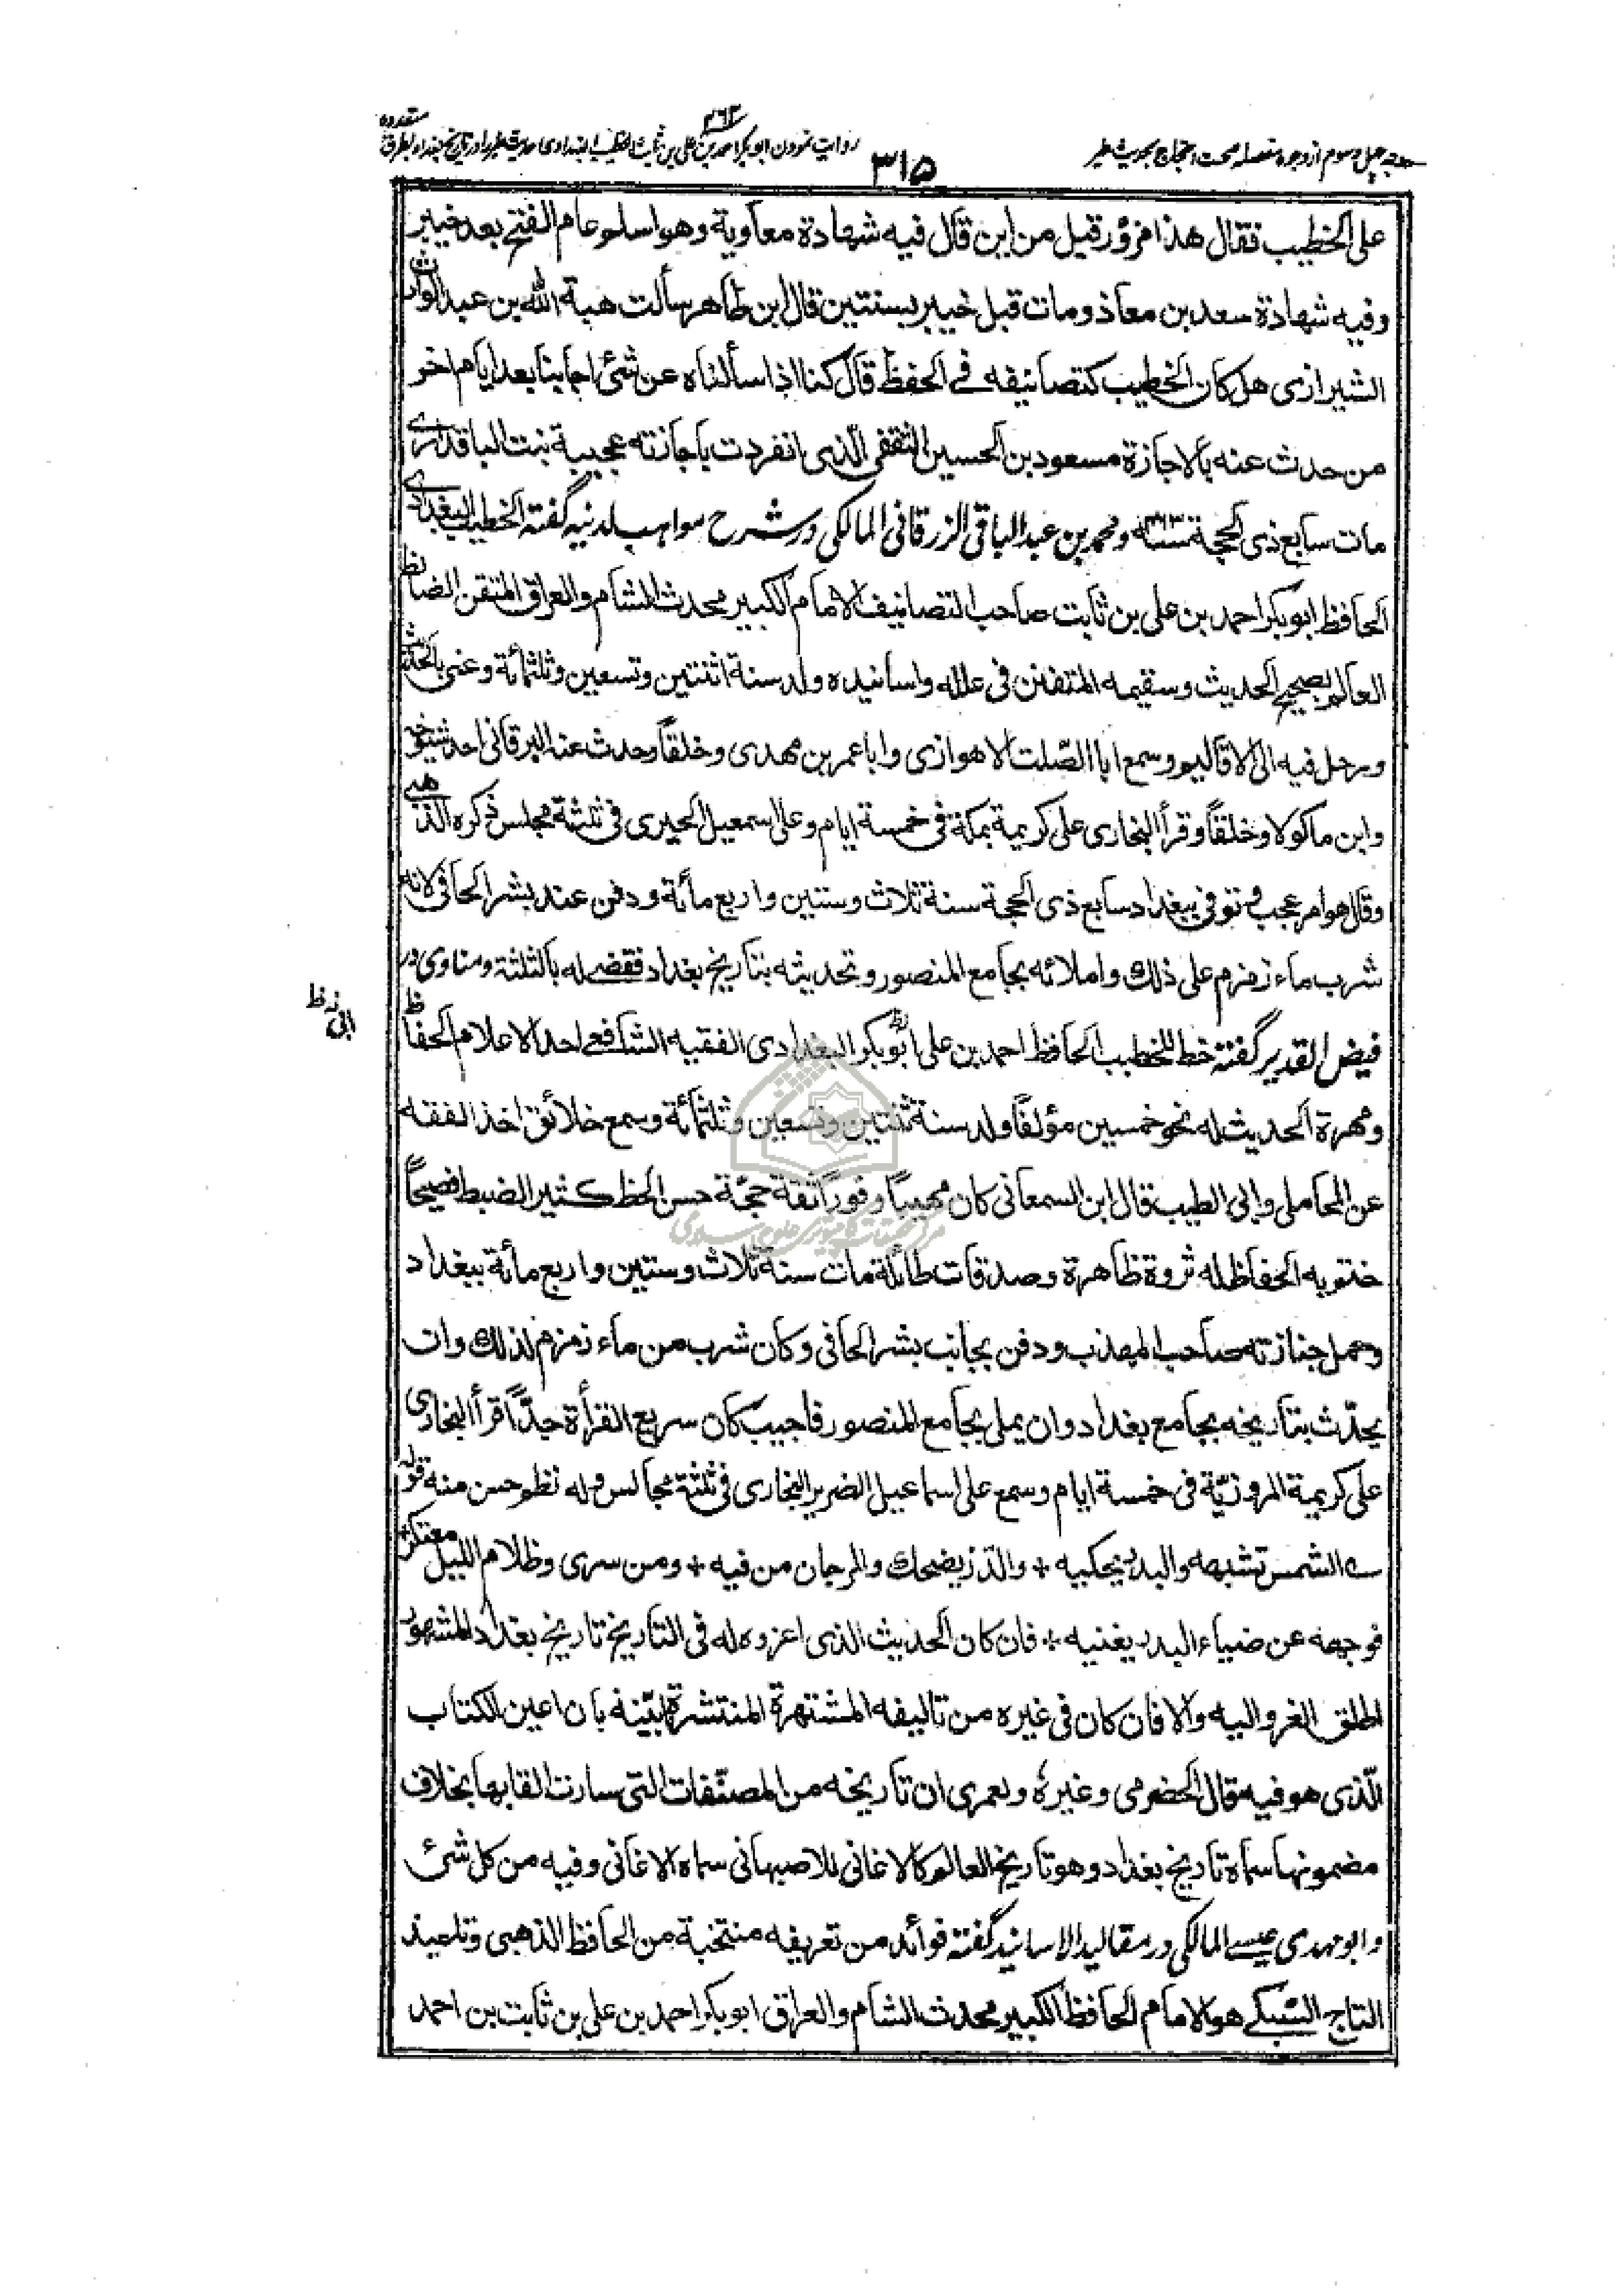 وجه چهل و سوم از وجوه مفصله صحت احتجاج بحديث طير
٣١٥
روايت نمودن ابوبكر احمد بن على بن ثابت الخطيب البغدادى حديث طير را در تاريخ بغداد بطرق متعدده
على الخطيب فقال هذا مزوّر قيل من اين قال فيه شهادة معاوية وهو اسلم عام الفتح بعد خيبر
وفيه شهادة سعد بن معاذ ومات قبل خيبر بسنتين قال ابن طاهر سألت هبة الله بن عبد الوارث
الشيرازى هل كان الخطيب كتصانيفه فى الحفظ قال كنا اذا سألناه عن شئ اجابنا بعد ايام اخر
من حدث عنه بالاجازة مسعود بن الحسين الثقفى الّذى انفردت باجازته عجيبة بنت الباقدارى
مات سابع ذى الحجة سنة ٤٦٣ ومحمد بن عبد الباقى الزرقانى المالكى در شرح مواهب لدنيه گفته الخطيب البغدادى
الحافظ ابوبكر احمد بن على بن ثابت صاحب التصانيف الامام الكبير محدث الشام والعراق المتقن الضابط
العالم بصحيح الحديث وسقيمه المتفنن فى علله واسانيده ولد سنة اثنتين وتسعين وثلثمائة وعنى بالحديث
ورحل فيه الى الاقاليم وسمع ابا الصّلت الاهوازى وابا عمر بن مهدى وخلقاً وحدث عنه البرقانى احد شيوخه
وابن ماكولا وخلقاً وقرأ البخارى على كريمة بمكة فى خمسة ايام وعلى اسمعيل الحيرى فى ثلثة مجلس ذكره الذهبى
وقال هو امر عجب توفى ببغداد سابع ذى الحجة سنة ثلاث وستين واربع مائة ودفن عند بشر الحافى لانه
شرب ماء زمزم على ذلك واملائه بجامع المنصور وتحديثه بتاريخ بغداد فقضى له بالثلثة ومناوى در
فيض القدير گفته خط للخطيب الحافظ احمد بن على ابو بكر البغدادى الفقيه الشافعى احد الاعلام الحفاظ
ومهرة الحديث له نحو خمسين مؤلفاً ولد سنة ثنتين وتسعين وثلثمائة وسمع خلائق اخذ الفقه
عن المحاملى وابى الطيب قال ابن السمعانى كان مهيباً وقوراً ثقة حجّة حسن الخط كثير الضبط فصيحاً
ختم به الحفاظ له ثروة ظاهرة وصدقات طائلة مات سنة ثلاث وستين واربع مائة ببغداد
وحمل جنازته صاحب المهذب ودفن بجانب بشر الحافى وكان شرب من ماء زمزم لذلك وان
يحدّث بتاريخه بجامع بغداد وان يملى بجامع المنصور فاجيب كان سريع القرأة جدّاً قرأ البخارى
على كريمة المروزيّة فى خمسة ايام وسمع على اسماعيل الضرير البخارى فى ثلثة مجالس وله نظم حسن منه قوله
الشمس تشبهه والبدر يحكيه + والدّر يضحك والمرجان من فيه + ومن سرى وظلام الليل معتكر +
فوجهه عن ضياء البدر يغنيه + فان كان الحديث الذى اعزوه له فى التاريخ تاريخ بغداد المشهور
اطلق الغرو اليه والا فان كان فى غيره من تاليفه المشتهرة المنتشرة ابيّنه بان اعين الكتاب
الّذى هو فيه قال الحضرمى وغيره ولعمرى ان تاريخه من المصنّفات التى سارت القابها بخلاف
مضمونها سماه تاريخ بغداد وهو تاريخ العالم كالاغانى للاصبهانى سماه الاغانى وفيه من كل شئ
وابو مهدى عيسى المالكى در مقاليد الاسانيد گفته فوائد من تعريفه منتخبة من الحافظ الذهبى وتلميذ
التاج السّبكى هو الامام الحافظ الكبير محدث الشام والعراق ابو بكر احمد بن على بن ثابت بن احمد
مركز تحقيقات كامپيوترى علوم اسلامى